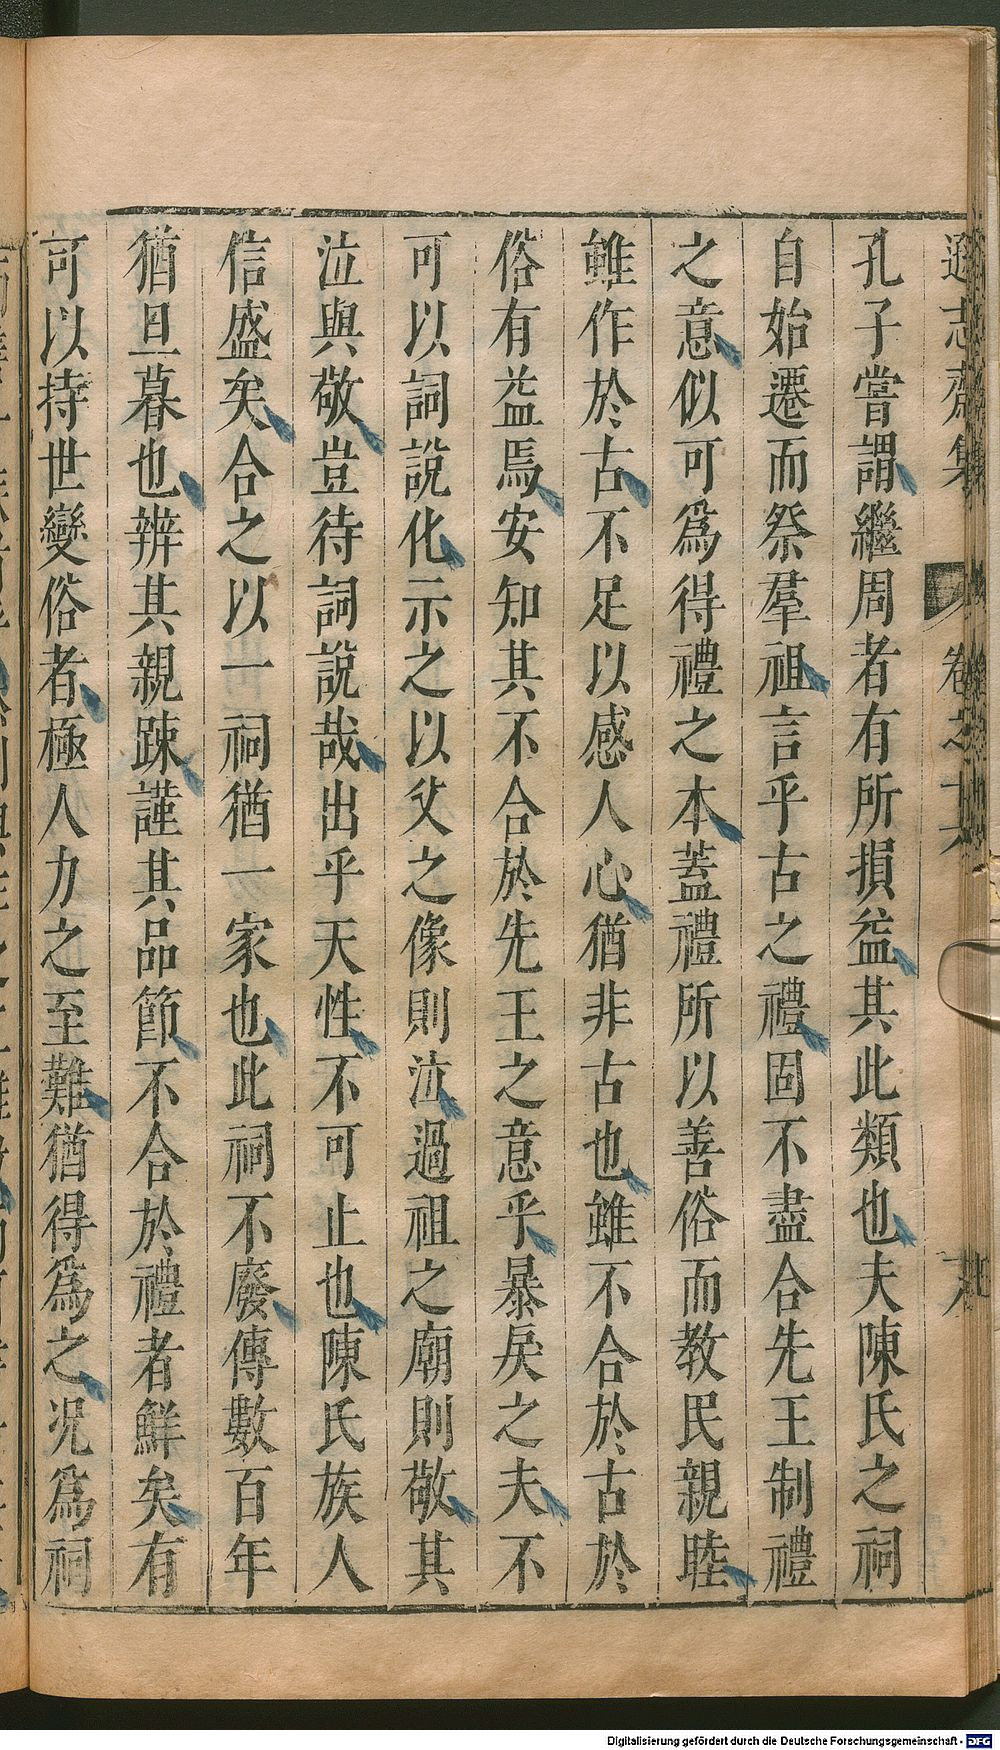 遜志齋集 卷之十六
孔子嘗謂繼周者有所損益其此類也夫陳氏之祠
自始遷而祭羣祖言乎古之禮固不盡合先王制禮
之意似可爲得禮之本蓋禮所以善俗而教民親睦
雖作於古不足以感人心猶非古也雖不合於古於
俗有益焉安知其不合於先王之意乎暴戾之夫不
可以詞說化示之以父之像則泣過祖之廟則敬其
泣與敬豈待詞說哉出乎天性不可止也陳氏族人
信盛矣合之以一祠猶一家也此祠不廢傳數百年
猶旦暮也辨其親踈謹其品節不合於禮者鮮矣有
可以持世變俗者極人力之至難猶得爲之况爲祠
Digitalisierung gefördert durch die Deutsche Forschungsgemeinschaft - DFG